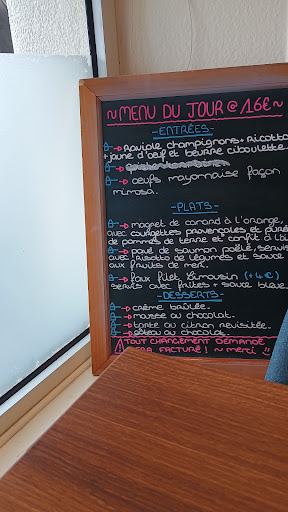 ~MENU DU JOUR @ 16€~
-ENTRÉES-
Raviole champignons + Ricotta
+ jaune d'oeuf et beurre ciboulette.
œufs mayonnaise façon
mimosa.
-PLATS-
magret de canard à l'orange,
avec courgettes provençales et purée
de pommes de terre et confit à l'
pavé de saumon poêlé, servis
avec risotto de légumes et sauce
aux fruits de mer.
faux filet Limousin (+4€)
servis avec frites + sauce bleue
-DESSERTS-
crème brûlée.
mousse au chocolat.
tarte au citron revisitée.
gâteau au chocolat.
TOUT CHANGEMENT DEMANDÉ
SERA FACTURÉ! ~ merci !!